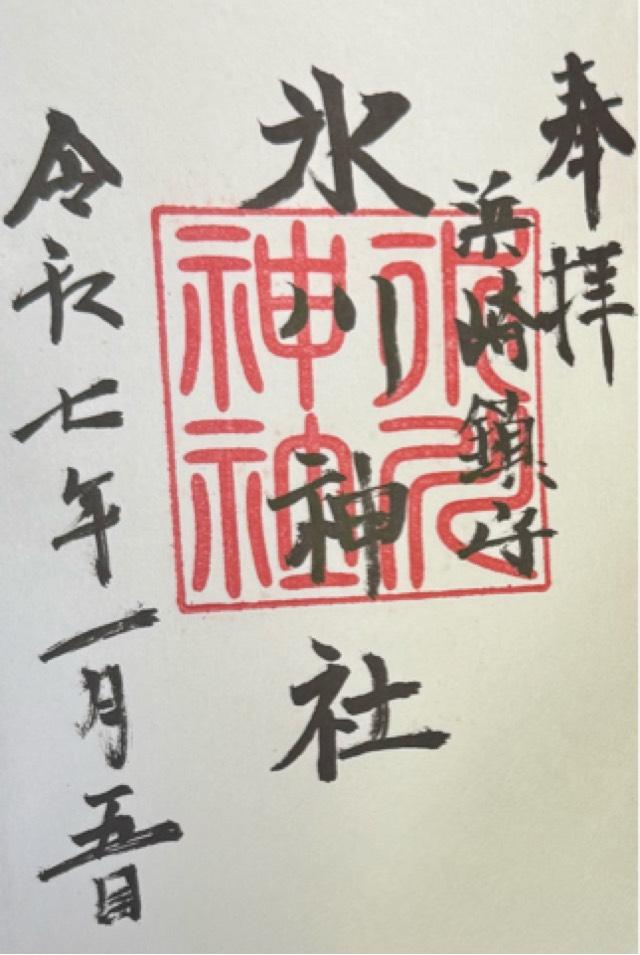 奉拝
浜崎鎮守
氷川神社
令和七年一月五日
氷川
神社